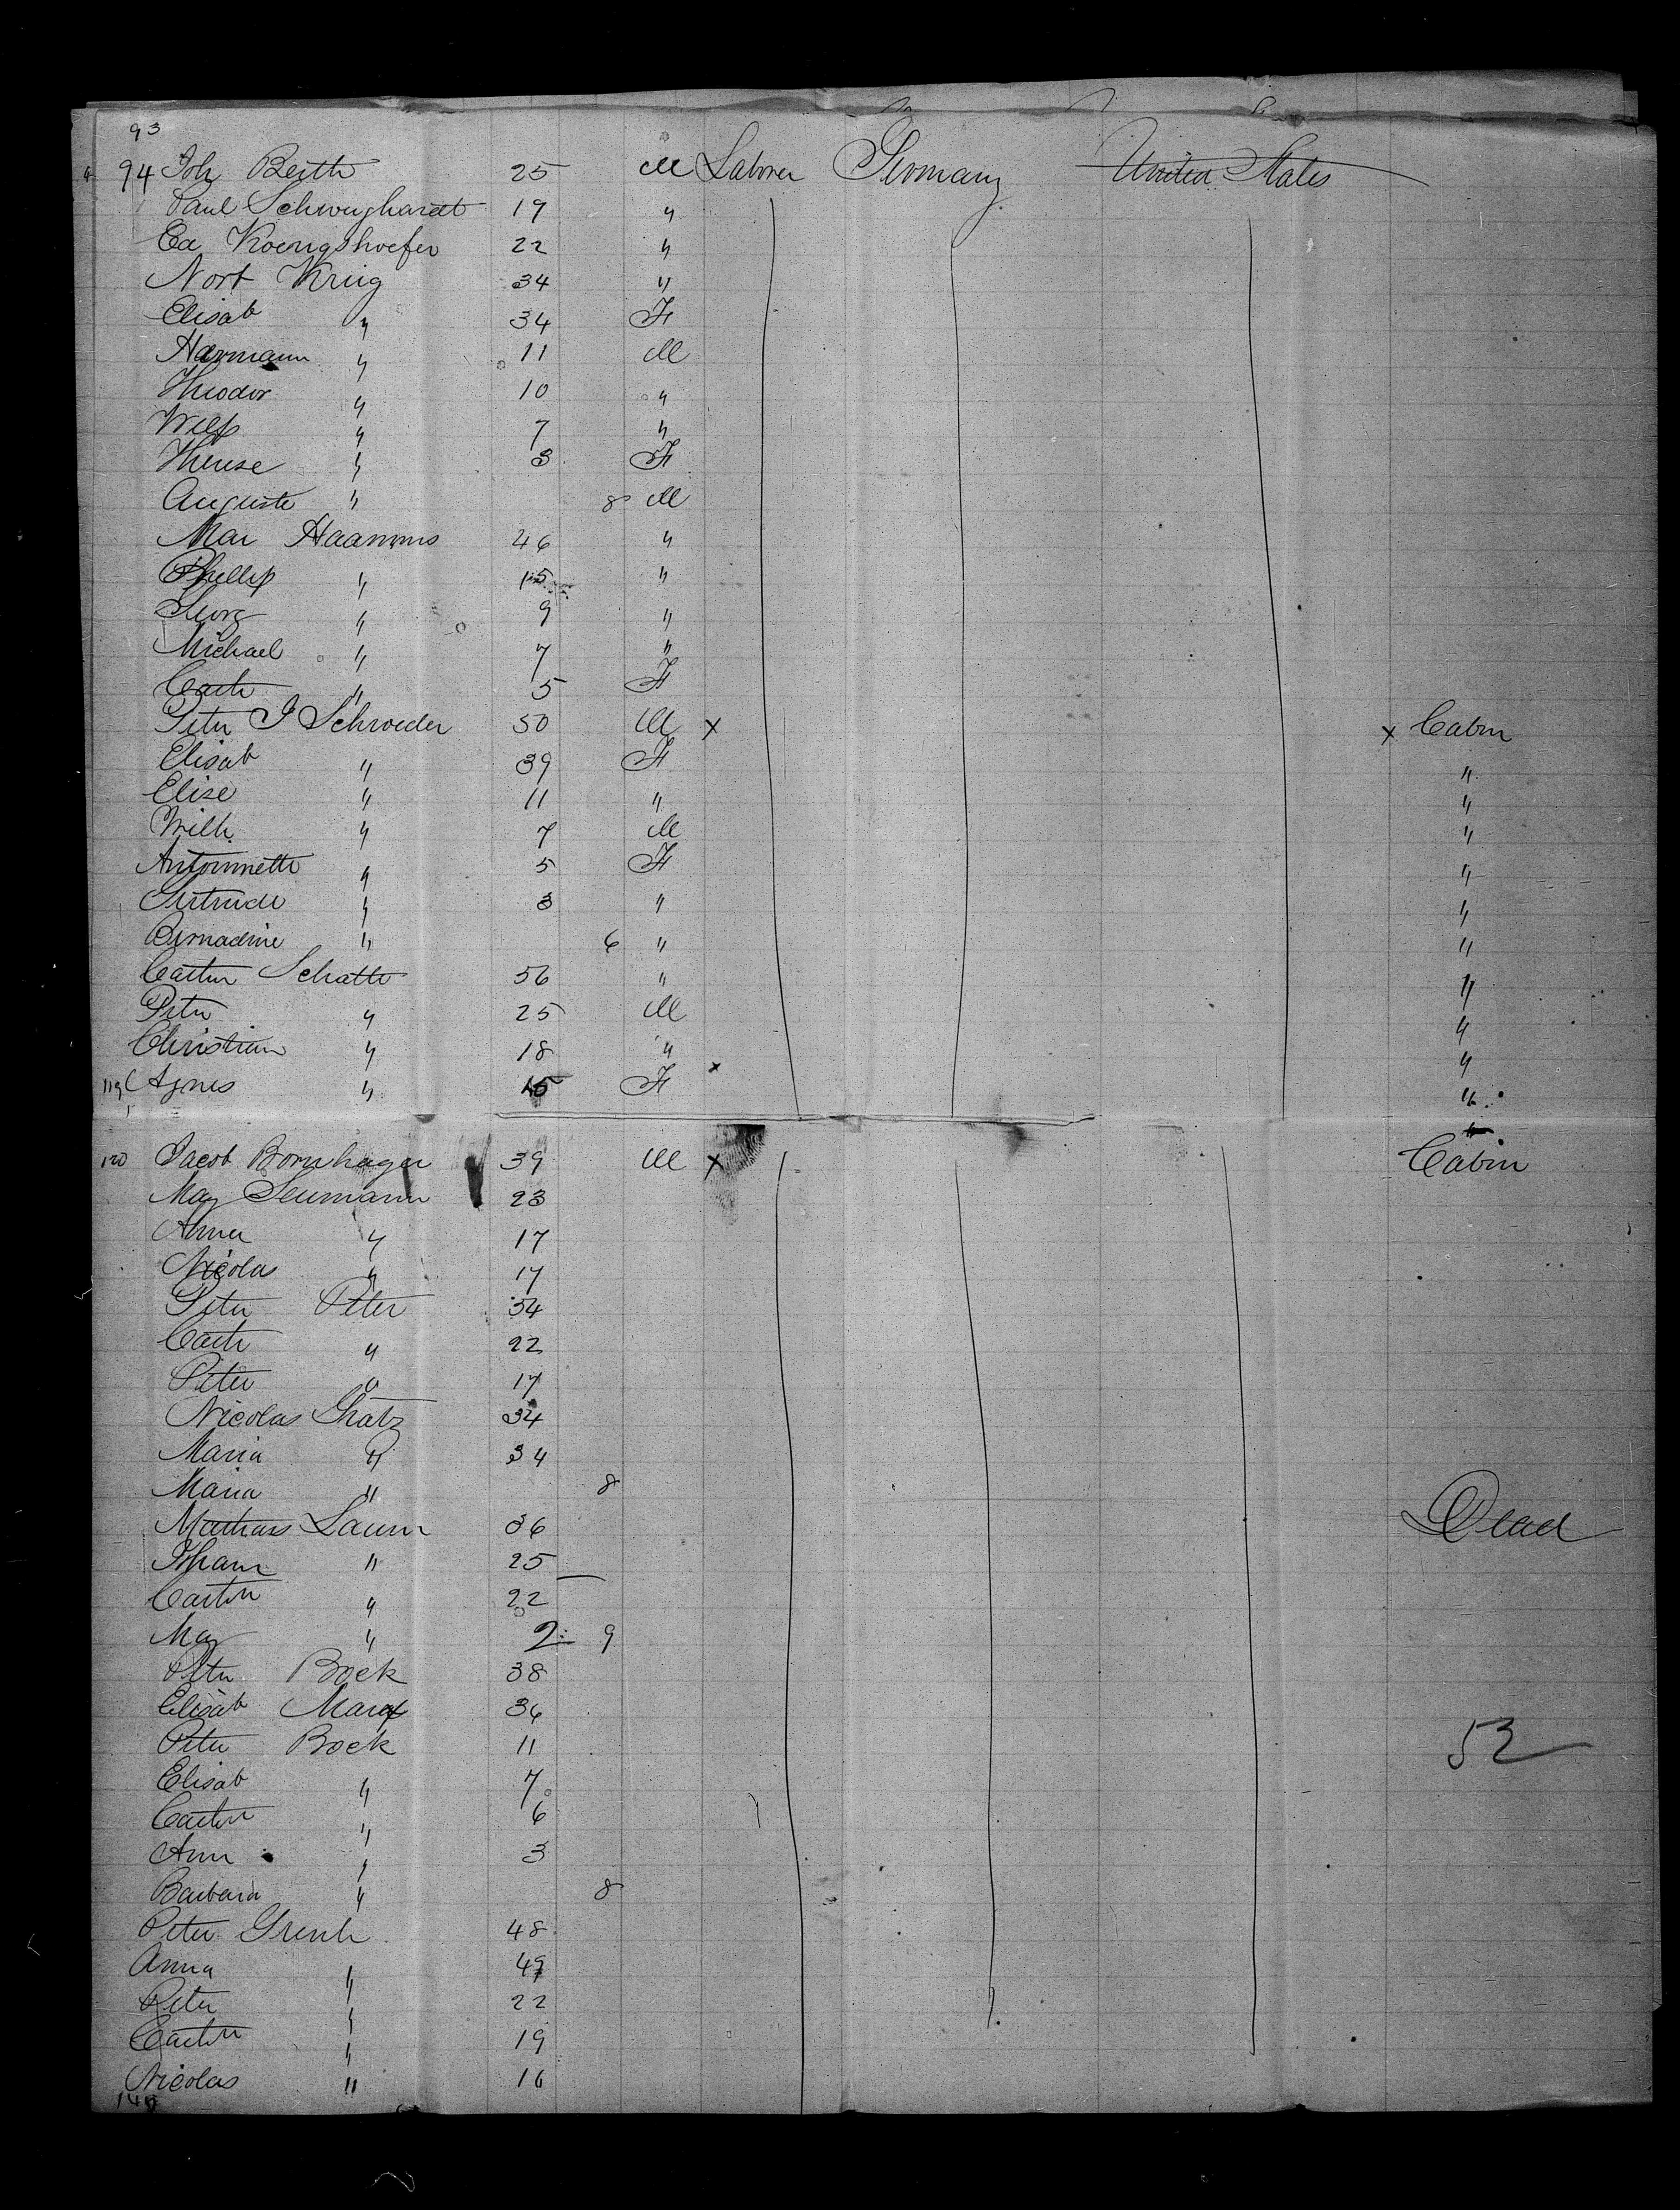 93
94 Joh Beith 25 M Laborer Germany United States
Paul Schweighardt 19 "
Ed Koenigshoefer 22 "
Nort Krug 34 "
Elisab " 34 F
Hermann " 11 M
Theodor " 10 "
Wilh " 7 "
Therese " 3 F
Auguste " 8 M
Mar Haammes 46 "
Phillip " 15 "
Georg " 9 "
Michael " 7 "
Cath " 5 F
Peter J Schroeder 50 M x x Cabin
Elisab " 39 F "
Elise " 11 " "
Wilh " 7 M "
Antoinnette " 5 F "
Gertrude " 3 " "
Bernadine " 6 " "
Cathr Schatte 56 " "
Peter " 25 M "
Christian " 18 " "
119 Agnes " 15 F x "
120 Jacob Bornhagen 39 M x Cabin
May Seumann 23
Anna " 17
Nicolas " 17
Peter Peter 34
Cath " 22
Peter " 17
Nicolas Shatz 34
Maria " 34
Maria " 8
Mathais Laum 36 Dead
Johann " 25
Cathr " 22
May " 2 9
Peter Bock 38
Elisab Marx 36
Peter Bock 11 52
Elisab " 7
Cathr " 6
Ann " 3
Barbara " 8
Peter Grenh 48
Anna " 49
Peter " 22
Cathr " 19
Nicolas " 16